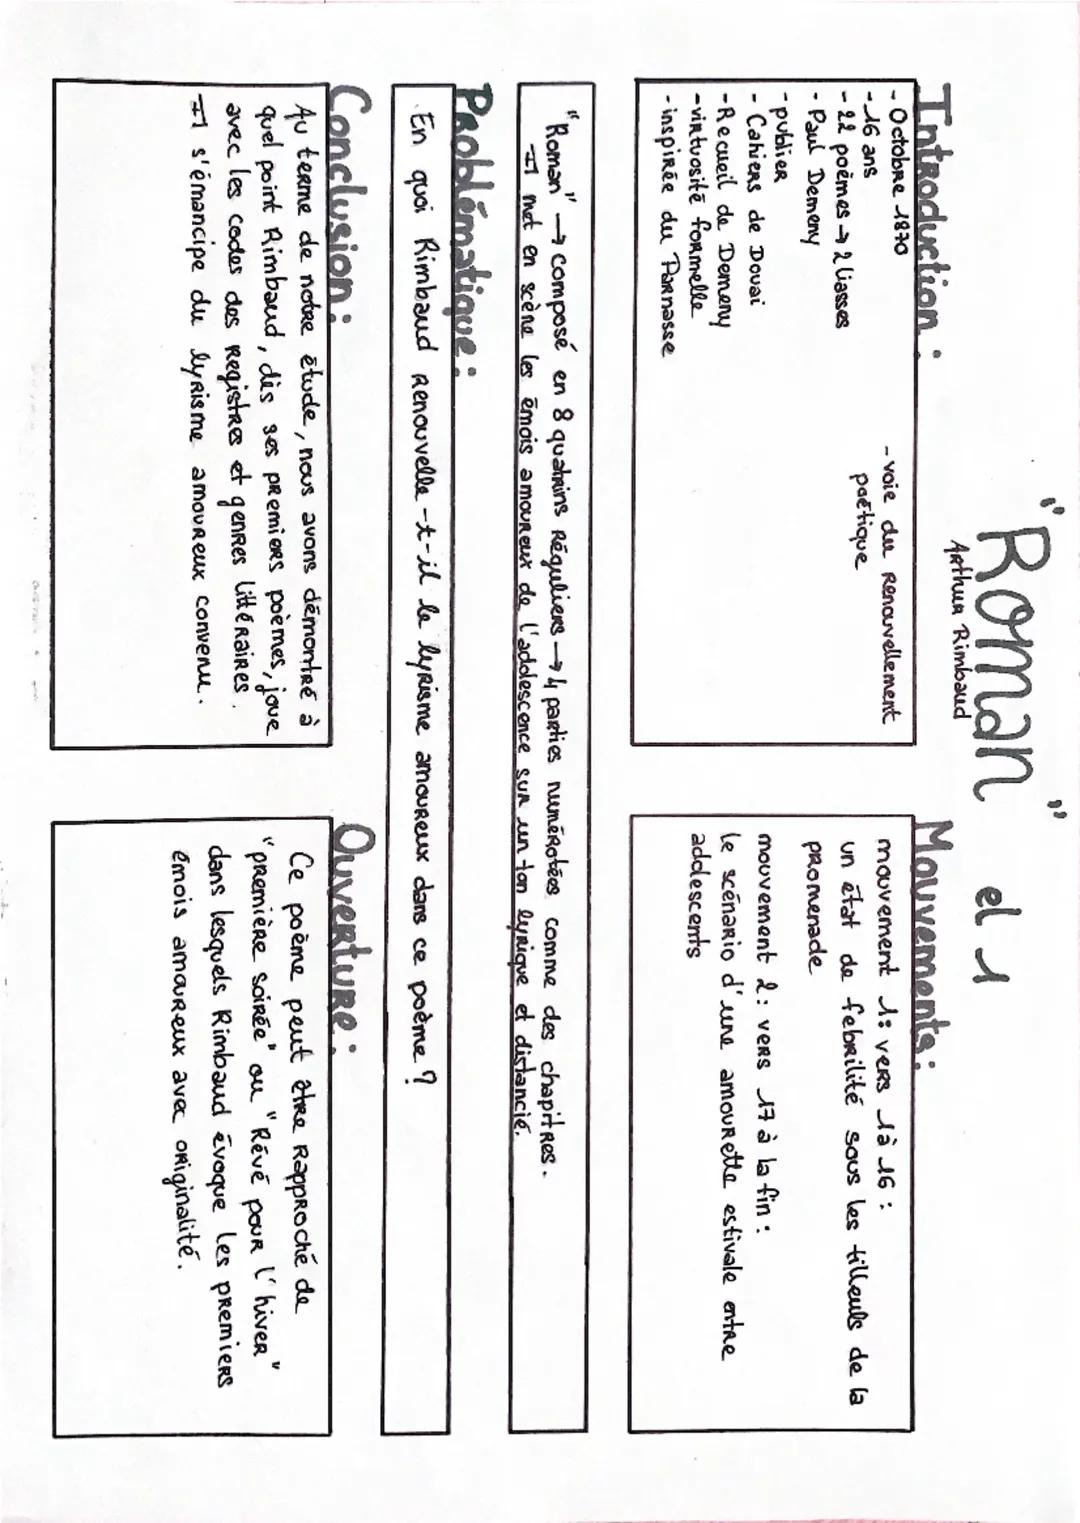 "Roman" el 1
Arthur Rimbaud
Introduction :
- Octobre 1870
- 16 ans
- 22 poèmes → 2 liasses
- Paul Demeny
- publier
- Cahiers de Douai
- Recueil de Demeny
- virtuosité formelle
- inspirée du Parnasse
- voie du renouvellement
poétique
Mouvements :
mouvement 1 : vers 1 à 16 :
un état de febrilité sous les tilleuls de la
promenade
mouvement 2 : vers 17 à la fin :
le scénario d'une amourette estivale entre
addescents
"Roman" → composé en 8 quatrains réguliers → 4 parties numérotées comme des chapitres.
Il met en scène les émois amoureux de l'addescence sur un ton lyrique et distancié.
Problématique :
En quoi Rimbaud renouvelle-t-il le lyrisme amoureux dans ce poème ?
Conclusion :
Au terme de notre étude, nous avons démontré à
quel point Rimbaud, dès ses premiers poèmes, joue
avec les codes des registres et genres littéraires.
Il s'émancipe du lyrisme amoureux convenu.
Ouverture :
Ce poème peut être rapproché de
"première soirée" ou "Rêvé pour l'hiver"
dans lesquels Rimbaud évoque les premiers
émois amoureux avec originalité.